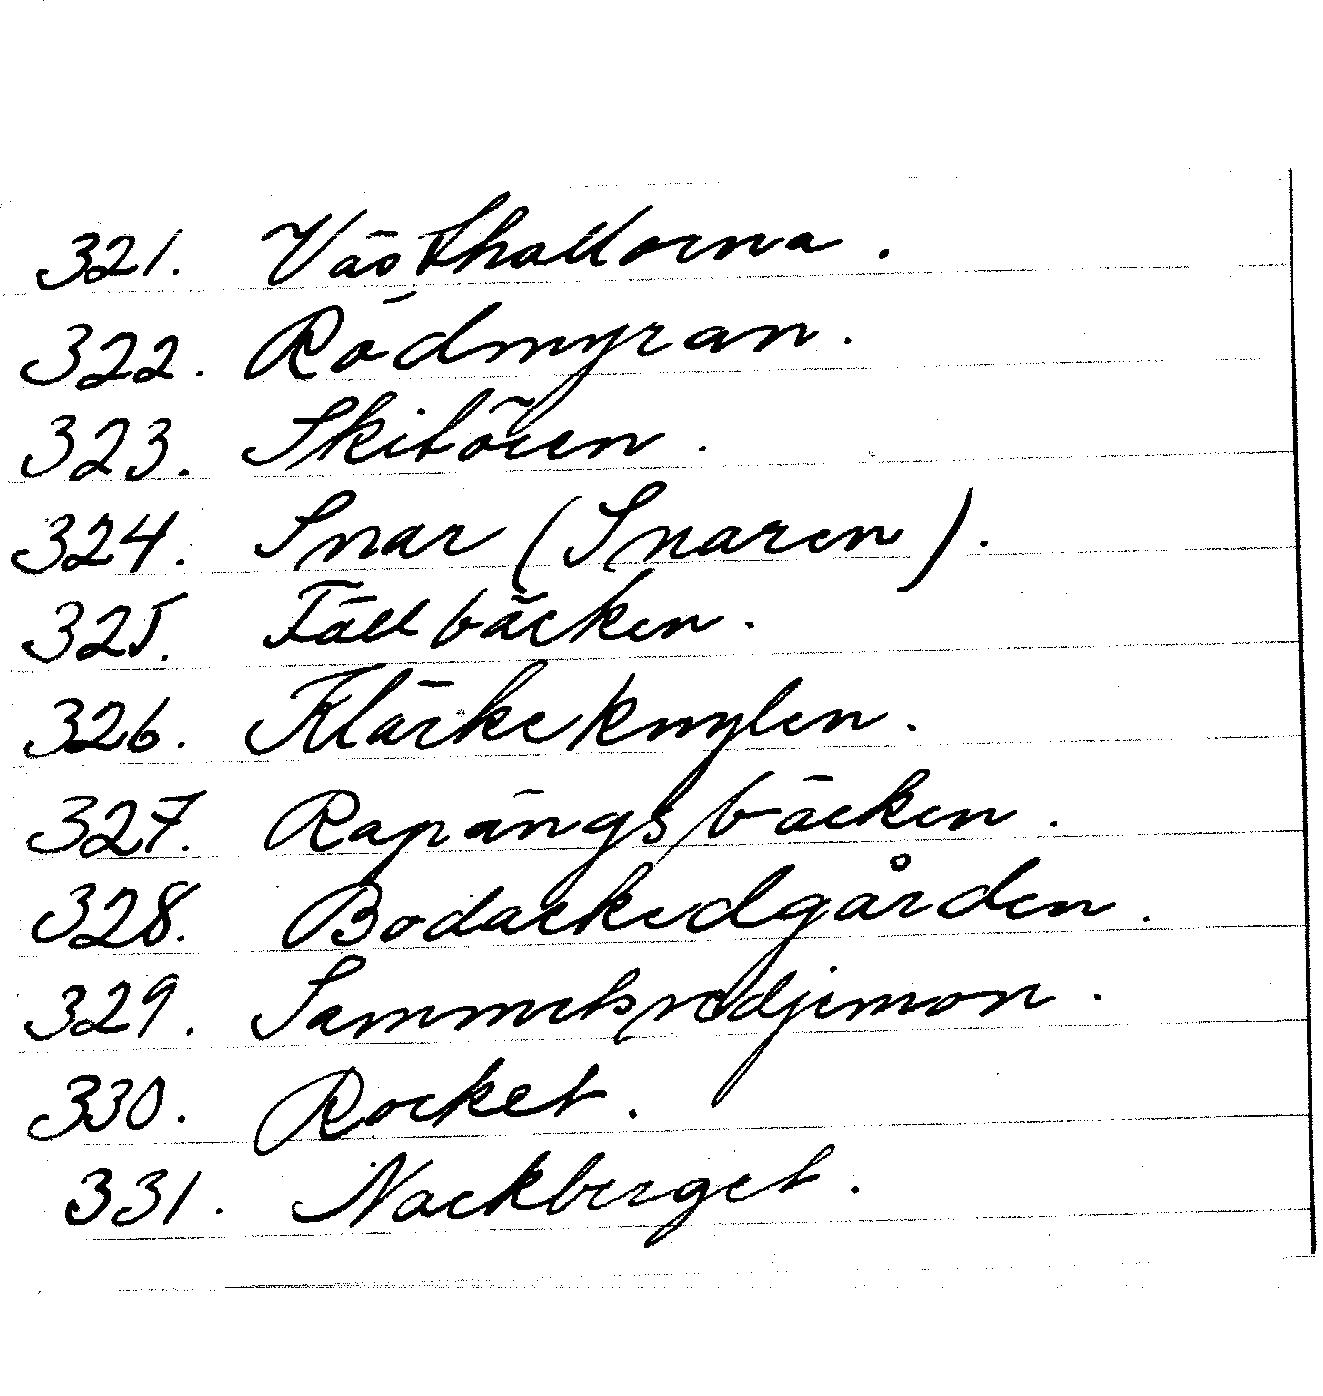 321. Västhallorna.
322. Rödmyran.
323. Skitören.
324. Snar (Snaren).
325. Fällbäcken.
326. Klärkeknylen.
327. Rapängsbäcken.
328. Bodackedgården.
329.
330. Rocket.
331. Nackberget.